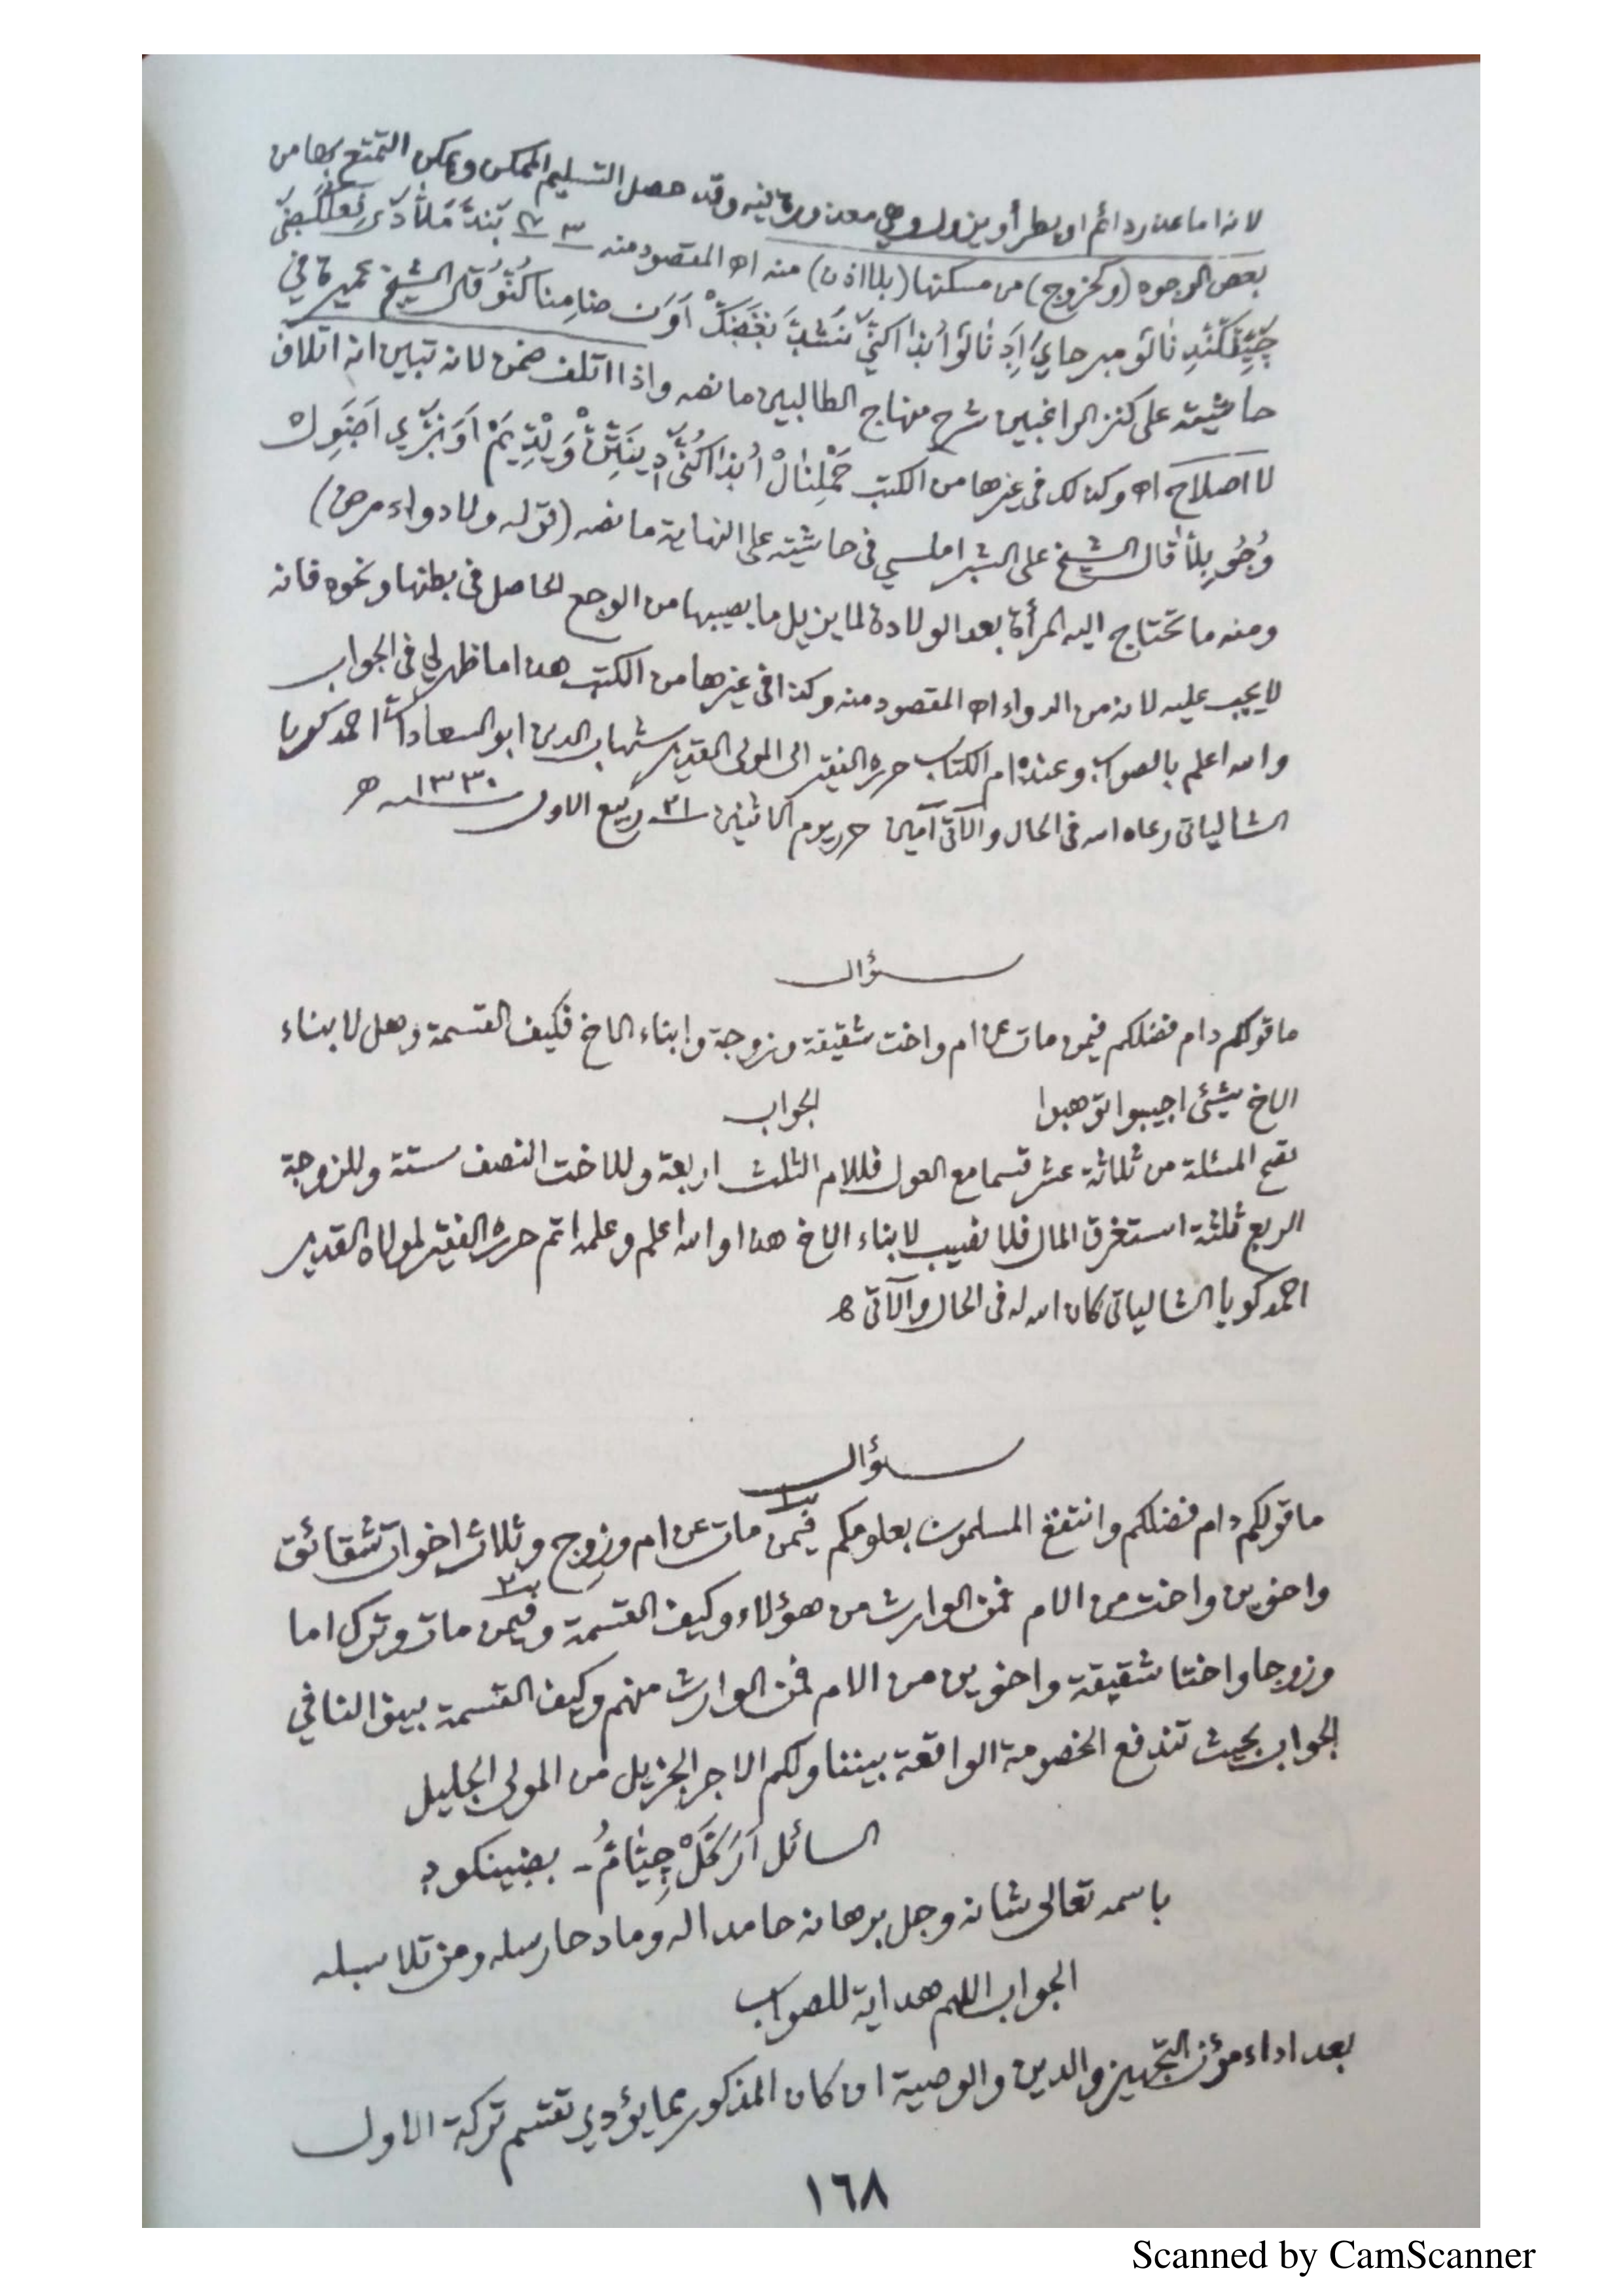 لانه اما عذر دائم او يطرأ ويزول وهي معذورة فيه وقد حصل التسليم الممكن ويمكن التمتع بها من
بعض الوجوه (وكخروج) من مسكنها (بلا اذن) منه اه المقصود منه
قال الشيخ عميرة في
حاشيته على كنز الراغبين شرح منهاج الطالبين ما نصه واذا اتلف ضمن لانه تبين انه اتلاف
لا اصلاح اه وكذلك في غيرها من الكتب
قال الشيخ على الشبراملسي في حاشيته على النهاية ما نصه (قوله ولا دواء مرض)
ومنه ما تحتاج اليه المرأة بعد الولادة لما يزيل ما يصيبها من الوجع الحاصل في بطنها ونحوه فانه
لا يجب عليه لانه من الدواء اه المقصود منه وكذا في غيرها من الكتب هذا ما ظهر لي في الجواب
والله اعلم بالصواب وعنده ام الكتاب حرره الفقير الى المولى القدير شهاب الدين ابو السعادات احمد كويا
الشالياتي رعاه الله في الحال والآتي آمين حرر يوم الاثنين ٢١ ربيع الاول سنه ١٣٣٠ ه
سؤال
ما قولكم دام فضلكم فيمن مات عن ام واخت شقيقة وزوجة وابناء الاخ فكيف القسمة وهل لابناء
الاخ شيئ اجيبوا توهبوا الجواب
تصح المسئلة من ثلاثة عشر قسما مع العول فللام الثلث اربعة وللاخت النصف ستة وللزوجة
الربع ثلثة استغرق المال فلا نصيب لابناء الاخ هذا والله اعلم وعلمه اتم حرره الفقير لمولاه القدير
احمد كويا الشالياتي كان الله له في الحال والآتي ه
سؤال
ما قولكم دام فضلكم وانتفع المسلمون بعلومكم فيمن مات عن ام وزوج وثلاث اخوات شقائق
واخوين واخت من الام فمن الوارث من هؤلاء وكيف القسمة وفيمن مات وترك اما
وزوجا واختا شقيقة واخوين من الام فمن الوارث منهم وكيف القسمة بينوا لنا في
الجواب بحيث تندفع الخصومة الواقعة بيننا ولكم الاجر الجزيل من المولى الجليل
السائل
باسمه تعالى شانه وجل برهانه حامدا له ومادحا رسله ومن تلا سبله
الجواب اللهم هداية للصواب
بعد اداء مؤن التجهيز والدين والوصية ان كان المذكور مما يؤدي تقتسم تركة الاول
١٦٨
Scanned by CamScanner